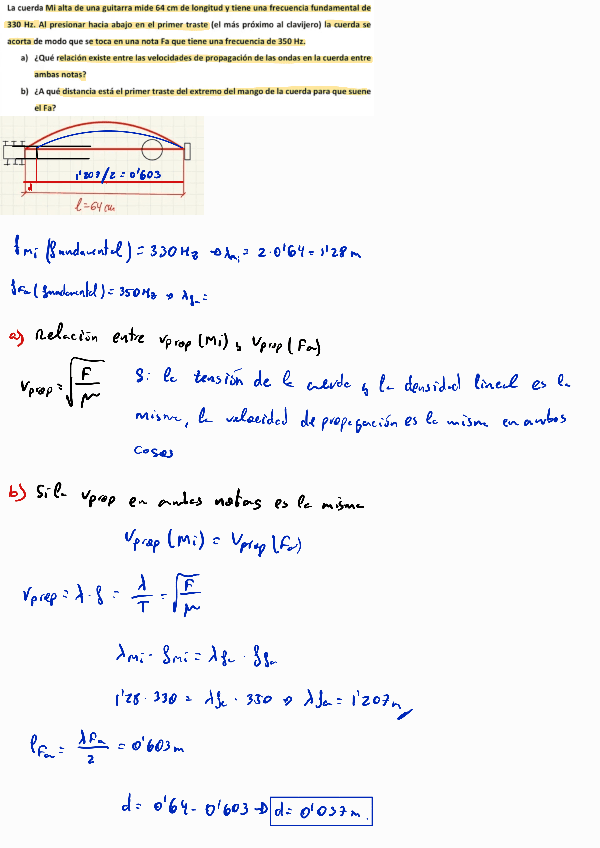 La cuerda Mi alta de una guitarra mide 64 cm de longitud y tiene una frecuencia fundamental de
330 Hz. Al presionar hacia abajo en el primer traste (el más próximo al clavijero) la cuerda se
acorta de modo que se toca en una nota Fa que tiene una frecuencia de 350 Hz.
a) ¿Qué relación existe entre las velocidades de propagación de las ondas en la cuerda entre
ambas notas?
b) ¿A qué distancia está el primer traste del extremo del mango de la cuerda para que suene
el Fa?
1'208/2 = 0'603
d
l = 64 cm
f Mi (fundamental) = 330 Hz → λMi = 2·0'64 = 1'28 m
f Fa (fundamental) = 350 Hz → λfa =
a) Relación entre vprop (Mi) y vprop (Fa)
vprop = √F/μ Si la tensión de la cuerda y la densidad lineal es la
misma, la velocidad de propagación es la misma en ambos
casos
b) Si la vprop en ambas notas es la misma
vprop (Mi) = vprop (Fa)
vprop = λ·f = λ/T = √F/μ
λMi · fMi = λfa · ffa
1'28 · 330 = λfa · 350 → λfa = 1'207 m
lFa = λFa/2 = 0'603 m
d = 0'64 - 0'603 → d = 0'037 m.